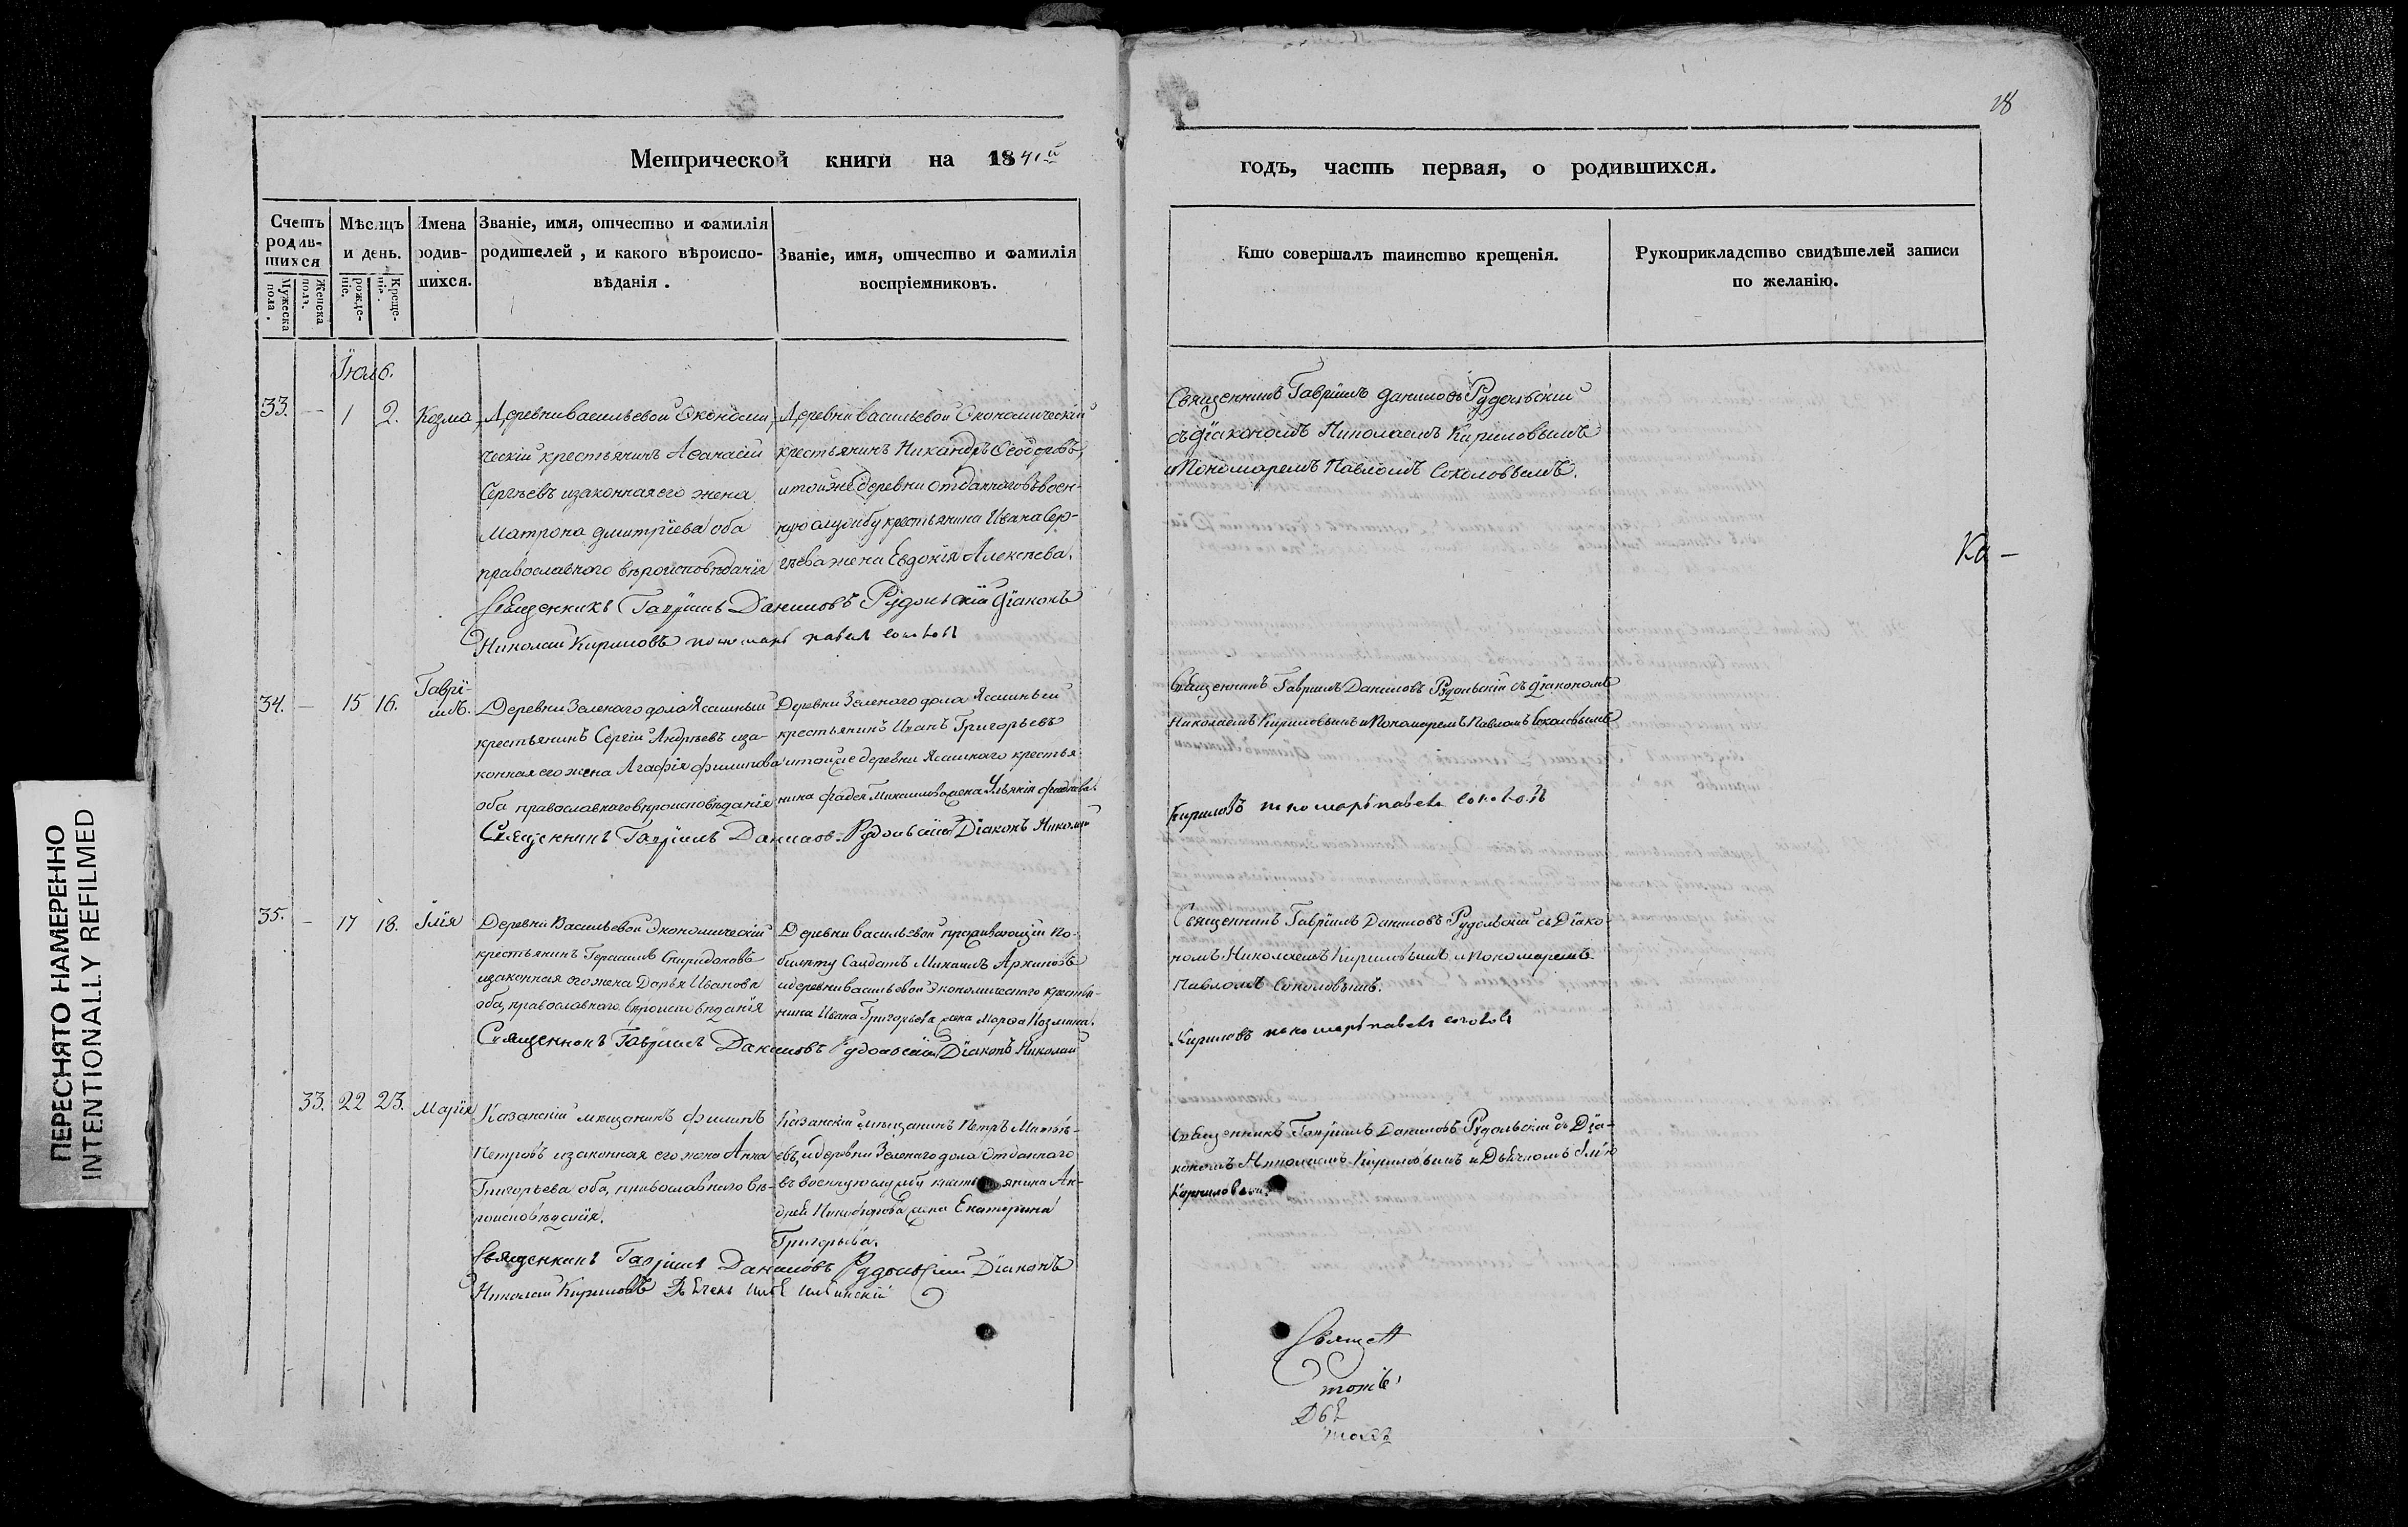 28
Метрической книги на 1841й
годъ, часть первая, о родившихся.
Счетъ родив-шихся
Мужеска пола.
Женска пола.
Мѣсяцъ и день.
рожде-ніе.
Креще-ніе.
Имена родив-шихся.
Званіе, имя, отчество и фамилія
родителей, и какого вѣроиспо-
вѣданія.
Званіе, имя, отчество и фамилія
воспріемниковъ.
Кто совершалъ таинство крещенія.
Рукоприкладство свидѣтелей записи
по желанію.
Іюль.
33. — 1 2. Козма
Деревни Васильевой Экономи-
ческій крестьянинъ Аѳанасій
Сергѣевъ и законная его жена
Матрона Дмитріева оба
православного вѣроисповѣданія
Деревни Васильевой Экономическій
крестьянинъ Никандръ Ѳеодоровъ,
и той же деревни отданнаго въ воен-
ную службу крестьянина Ивана Сер-
гѣева жена Евдокія Алексѣева.
Священникъ Гавріилъ Даниловъ Рудольскій
съ Діакономъ Николаемъ Кириловымъ
и Пономаремъ Павломъ Соколовымъ.
Священникъ Гавріилъ Даниловъ Рудольскій Діаконъ
Николай Кириловъ пономарь павел соколов
Ка —
34. — 15 16. Гаврі-
илъ.
Деревни Зеленаго дола Ясашный
крестьянинъ Сергій Андреевъ и за-
конная его жена Агафія Филипова
оба православнаго вѣроисповѣданія
Деревни Зеленаго дола Ясашный
крестьянинъ Иванъ Григорьевъ
и той же деревни Ясашнаго крестья-
нина Фадея Михаилова жена
Священникъ Гавріилъ Даниловъ Рудольскій съ Діакономъ
Николаемъ Кириловымъ и Пономаремъ Павломъ Соколовымъ
Священникъ Гавріилъ Даниловъ Рудольскій Діаконъ Николай
Кириловъ пономарь павелъ соколовъ
35. — 17 18. Ілія
Деревни Васильевой Экономическій
крестьянинъ Герасимъ Спиридоновъ
и законная его жена Дарья Иванова
оба, православнаго вѣроисповѣданія
Деревни Васильевой проживающій по
билету Салдатъ Михаилъ Архиповъ
и деревни Васильевой Экономическаго крестья-
нина Ивана Григорьева жена Марѳа Козмина.
Священникъ Гавріилъ Даниловъ Рудольскій съ Діако-
номъ Николаемъ Кириловымъ и Пономаремъ
Павломъ Соколовымъ.
Священникъ Гавріилъ Даниловъ Рудольскій Діаконъ Николай
Кириловъ пономарь павелъ соколовъ
33. 22 23. Марія
Казанскій мещанинъ Филипъ
Петровъ и законная его жена Анна
Григорьева оба, православнаго вѣ-
роисповѣданія.
Казанскій мѣщанинъ Петръ Матвѣ-
евъ, и деревни Зеленаго дола Отданнаго
въ военную службу крестьянина Ан-
дрея Никифорова жена Екатерина
Григорьева.
Священникъ Гавріилъ Даниловъ Рудольскій съ Діа-
кономъ Николаемъ Кириловымъ и Дьячкомъ
Священникъ Гавріилъ Даниловъ Рудольскій Діаконъ
Николай Кириловъ
Священ